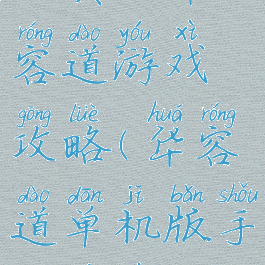 róng dào yóu xì
容道游戏
gōng lüè huá róng
攻略(华容
dào dān jī bǎn shǒu
道单机版手